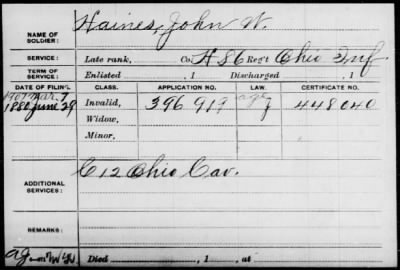 NAME OF SOLDIER: Haines, John W.
SERVICE: Late rank, Co. H 86 Reg't Ohio Inf
TERM OF SERVICE: Enlisted , 1 Discharged , 1
DATE OF FILING. CLASS. APPLICATION NO. LAW. CERTIFICATE NO.
1907 Mar. 7 age
1880 June 29 Invalid, 396 919 448 040
Widow,
Minor,
ADDITIONAL SERVICES: C 12 Ohio Cav.
REMARKS:
Died , 1 , at